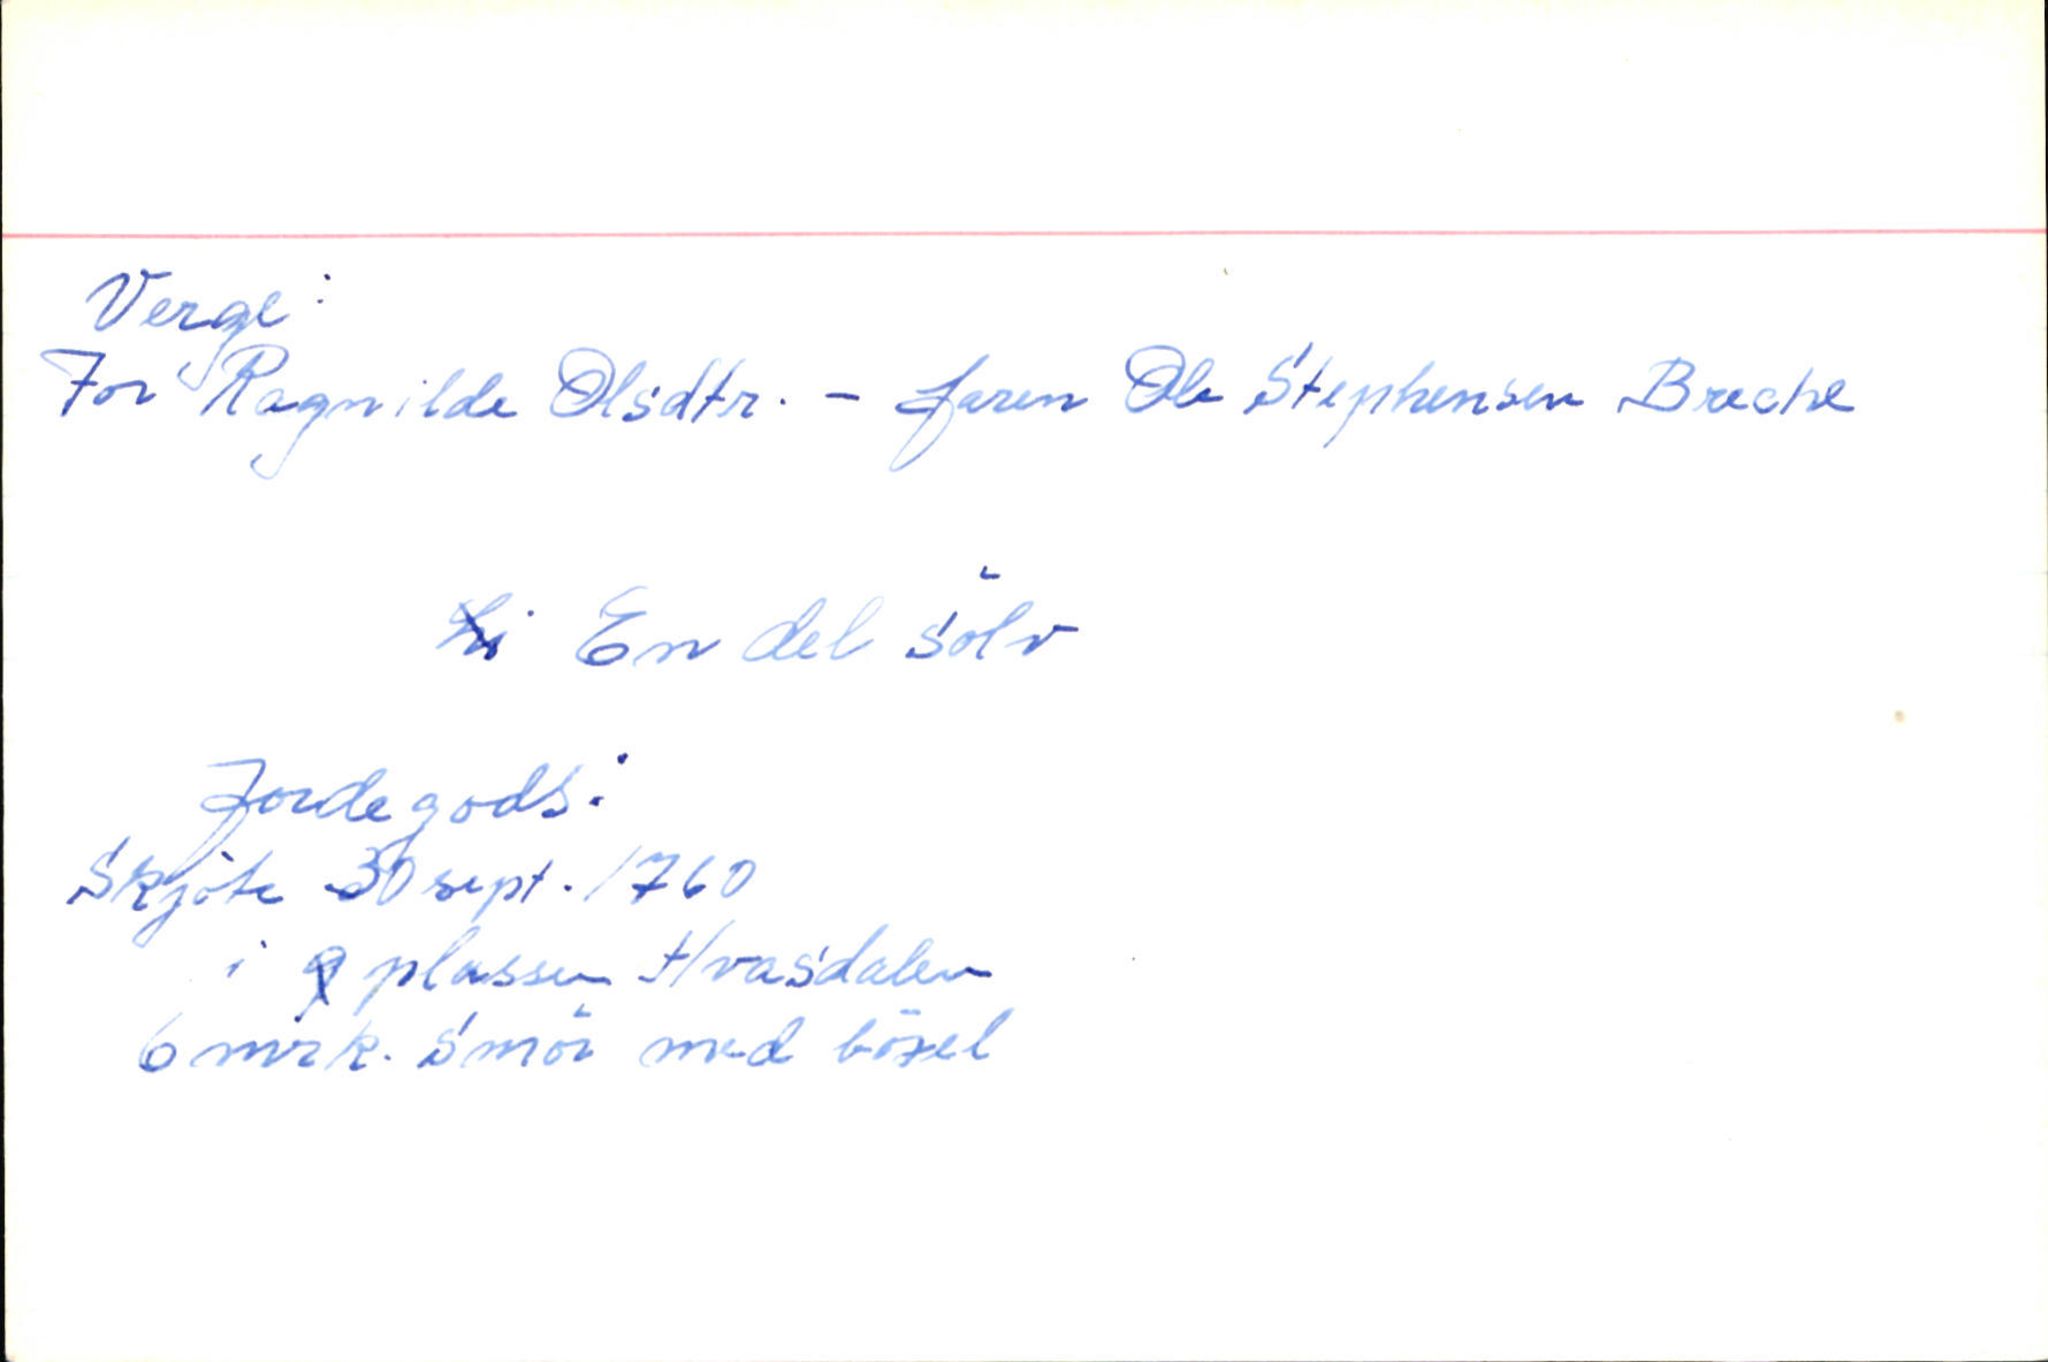 Verge:
For Ragnilde Olsdtr. - faren Ole Stephensen Breche
En del sölv
Jordegods:
Skjöte 30 sept. 1760
i plassen Hvasdalen
6 mrk. smör med böxel